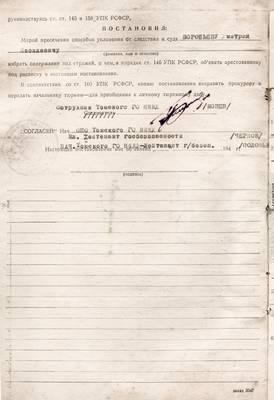 руководствуясь ст. ст. 145 и 158 УПК РСФСР,
ПОСТАНОВИЛ:
Мерой пресечения способов уклонения от следствия и суда
(фамилия, имя и отчество)
избрать содержание под стражей, о чем, в порядке ст. 146 УПК РСФСР, объявить арестованному
под расписку в настоящем постановлении.
В соответствии со ст. 160 УПК РСФСР, копию постановления направить прокурору и
передать начальнику тюрьмы—для приобщения к личному тюремному делу.
Сотрудник Томского ГО НКВД
СОГЛАСЕН: Нач. Томского ГО НКВД
Мл. Лейтенант госбезопасности /ЧЕРНОВ/
НАЧ. Томского ГО НКВД-Лейтенант г/безоп.
Настоящее постановление мне объявлено 194 г.
(подпись)